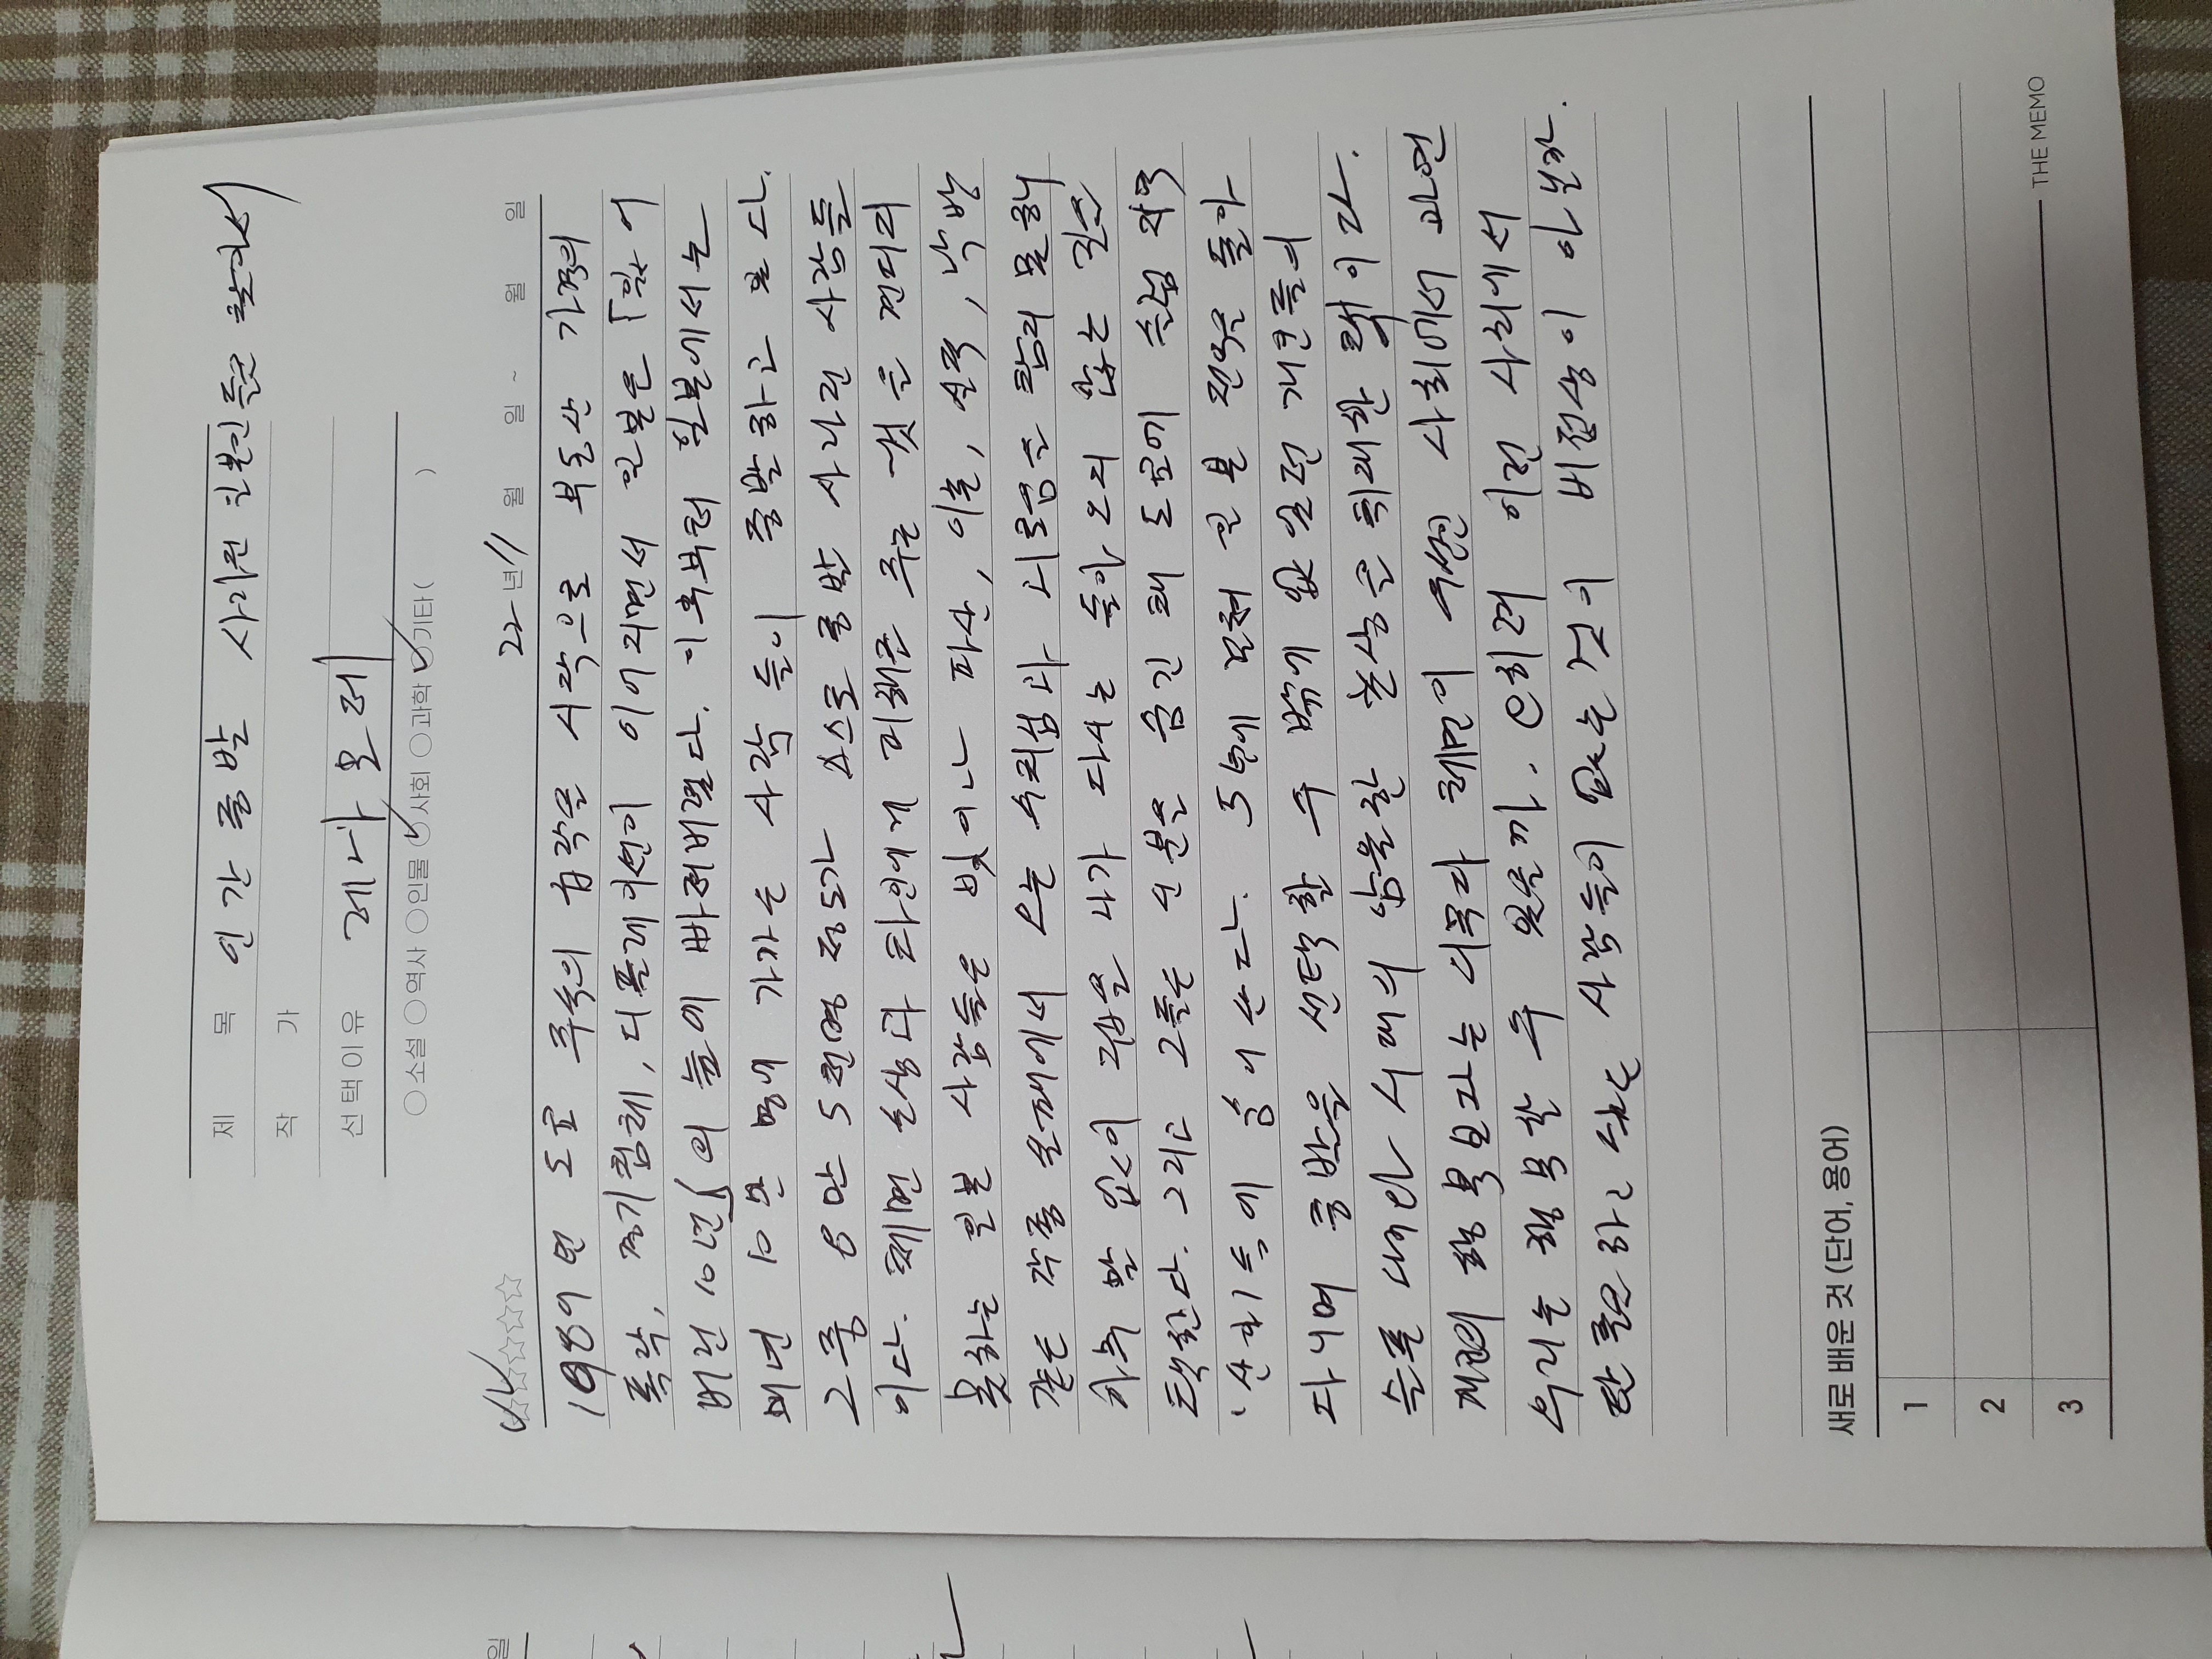 제 목 인간증발 사라진 일본인들을 찾아서
작 가
선택이유 레나 모제
소설 역사 인물 사회 과학 기타( )
22년 11월 일 ~ 월 일
1989년 도쿄 주식의 급락을 시작으로 부동산 가격의
폭락, 경기침체, 디플레이션이 이어지면서 일본은 「잃어
버린 10년」의 늪에 빠져버렸다. 이후부터 일본에서는
매년 10만 명에 가까운 사람들이 증발하고 있다.
그중 8만 5천명 정도가 스스로 증발 사라진 사람들
이다. 체면 손상과 타인에게 피해를 주는 것을 견디지
못하는 일본 사람들은 빚이나 파산, 이혼, 실직, 낙방
같은 각종 실패에서 오는 수치심과 괴로움을 참지 못해
아무 말 없이 집을 나가 다시는 돌아오지 않는 길을
택한다. 그리고 그들은 신분을 숨긴 채 도쿄에 슬럼 지역
'산야' 등에 숨어 산다. 5년에 걸쳐 일본 전역을 돌아
다니며 증발을 선택할 수 밖에 없었던 개인들의
슬픈 시대의 암울한 초상을 취재한 책이다.
개인의 행복보다는 의무와 체면이 우선인 사회에서 과연
우리는 행복할 수 있을까. 오히려 이런 사회에서
탈출하고 싶은 사람들이 없는 것이 비정상이 아닐까.
새로 배운 것 (단어, 용어)
1
2
3
THE MEMO
일